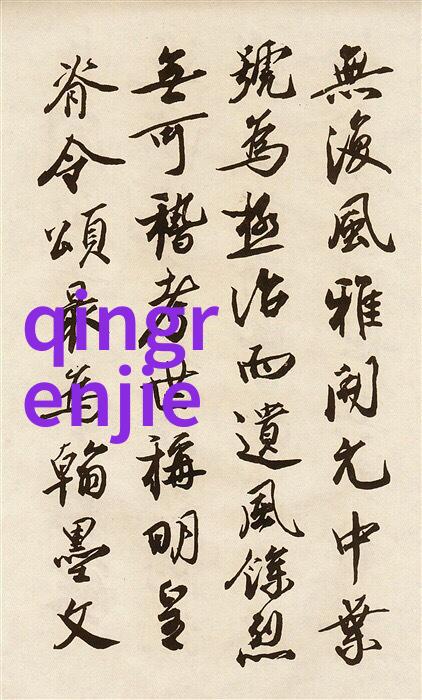 無復風雅開元中葉
號為極治而遺風餘烈
無可稽考世稱明皇
脊令頌最著翰墨文
qingr
enjie